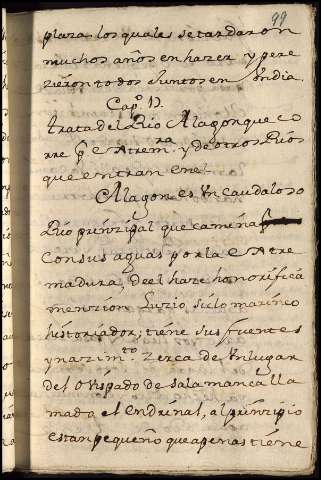 99
plaza los quales se tardaron
muchos años en hazer y pere
zieron todos juntos en Un dia.
Capº 17.
trata del Rio Alagon que co
rre pr Extremra. y de otros Rios
que entran en el
Alagon es Un caudaloso
Rio prinzipal que camina
Con sus aguas por la Extre
madura, de el haze honorifica
menzion Luzio siclo marineo
historiador; tiene sus fuentes
y nazimto. zerca de Un lugar
del Obispado de Salamanca lla
mado el endrinal, al prinzipio
es tan pequeño que apenas tiene